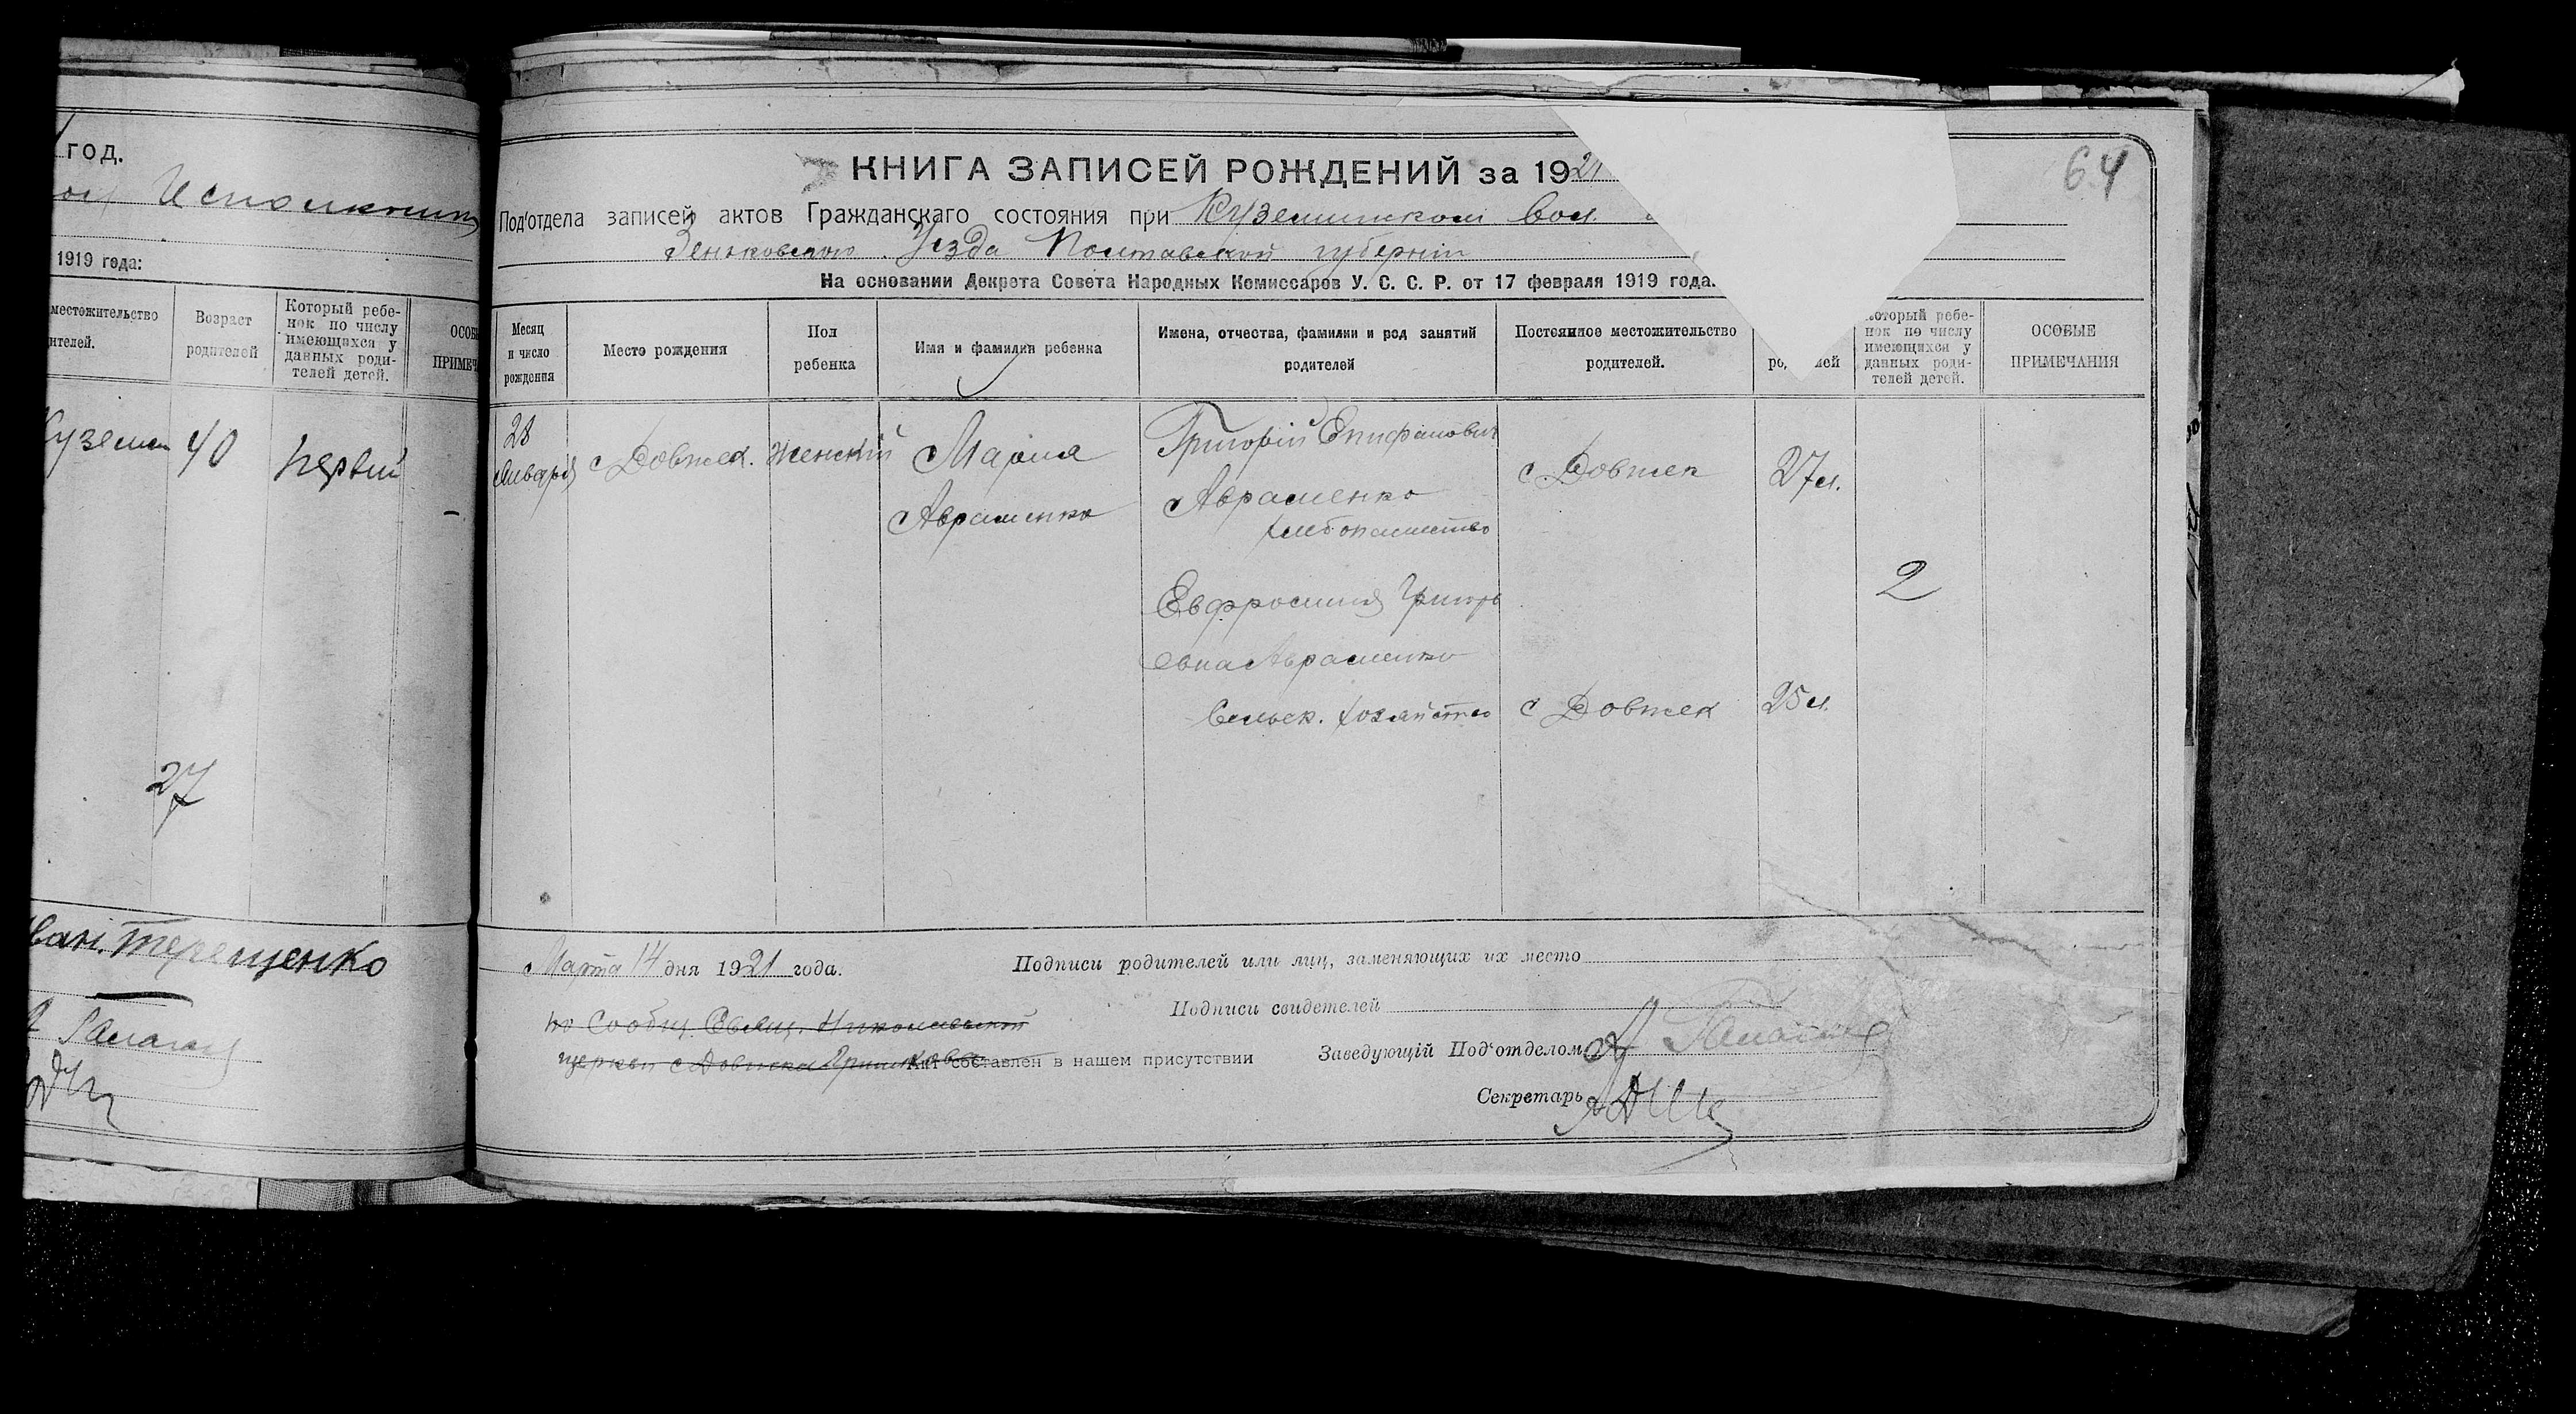 год.
Исполкоми
1919 года:
местожительство
ителей.
Возраст
родителей
Который ребе-
нок по числу
имеющихся у
данных роди-
телей детей.
ОСОБ
ПРИМЕЧ
Куземин 40 первый
27
Терещенко
64
КНИГА ЗАПИСЕЙ РОЖДЕНИЙ за 1921
Под'отдела записей актов Гражданскаго состояния при Куземинском Вол.
Зеньковского Уезда Полтавской губернии
На основании Декрета Совета Народных Комиссаров У. С. С. Р. от 17 февраля 1919 года.
Месяц
и число
рождения
Место рождения
Пол
ребенка
Имя и фамилия ребенка
Имена, отчества, фамилии и род занятий
родителей
Постоянное местожительство
родителей.
Который ребе-
нок по числу
имеющихся у
данных роди-
телей детей.
ОСОБЫЕ
ПРИМЕЧАНИЯ
28
Января
с Довжек.
Женскій
Мария
Авраменко
Григорій Епифанович
Авраменко
хлебопашество
с Довжек
27 л.
Евфросиния Григорь
евна Авраменко
2
Сельск. хозяйство
с Довжек
25 л.
Марта 14 дня 1921 года.
Подписи родителей или лиц, заменяющих их место
по Сообщ Свящ. Николаевской
Подписи свидетелей
церкви с Довжка
Акт составлен в нашем присутствии
Заведующій Под'отделом
Секретарь